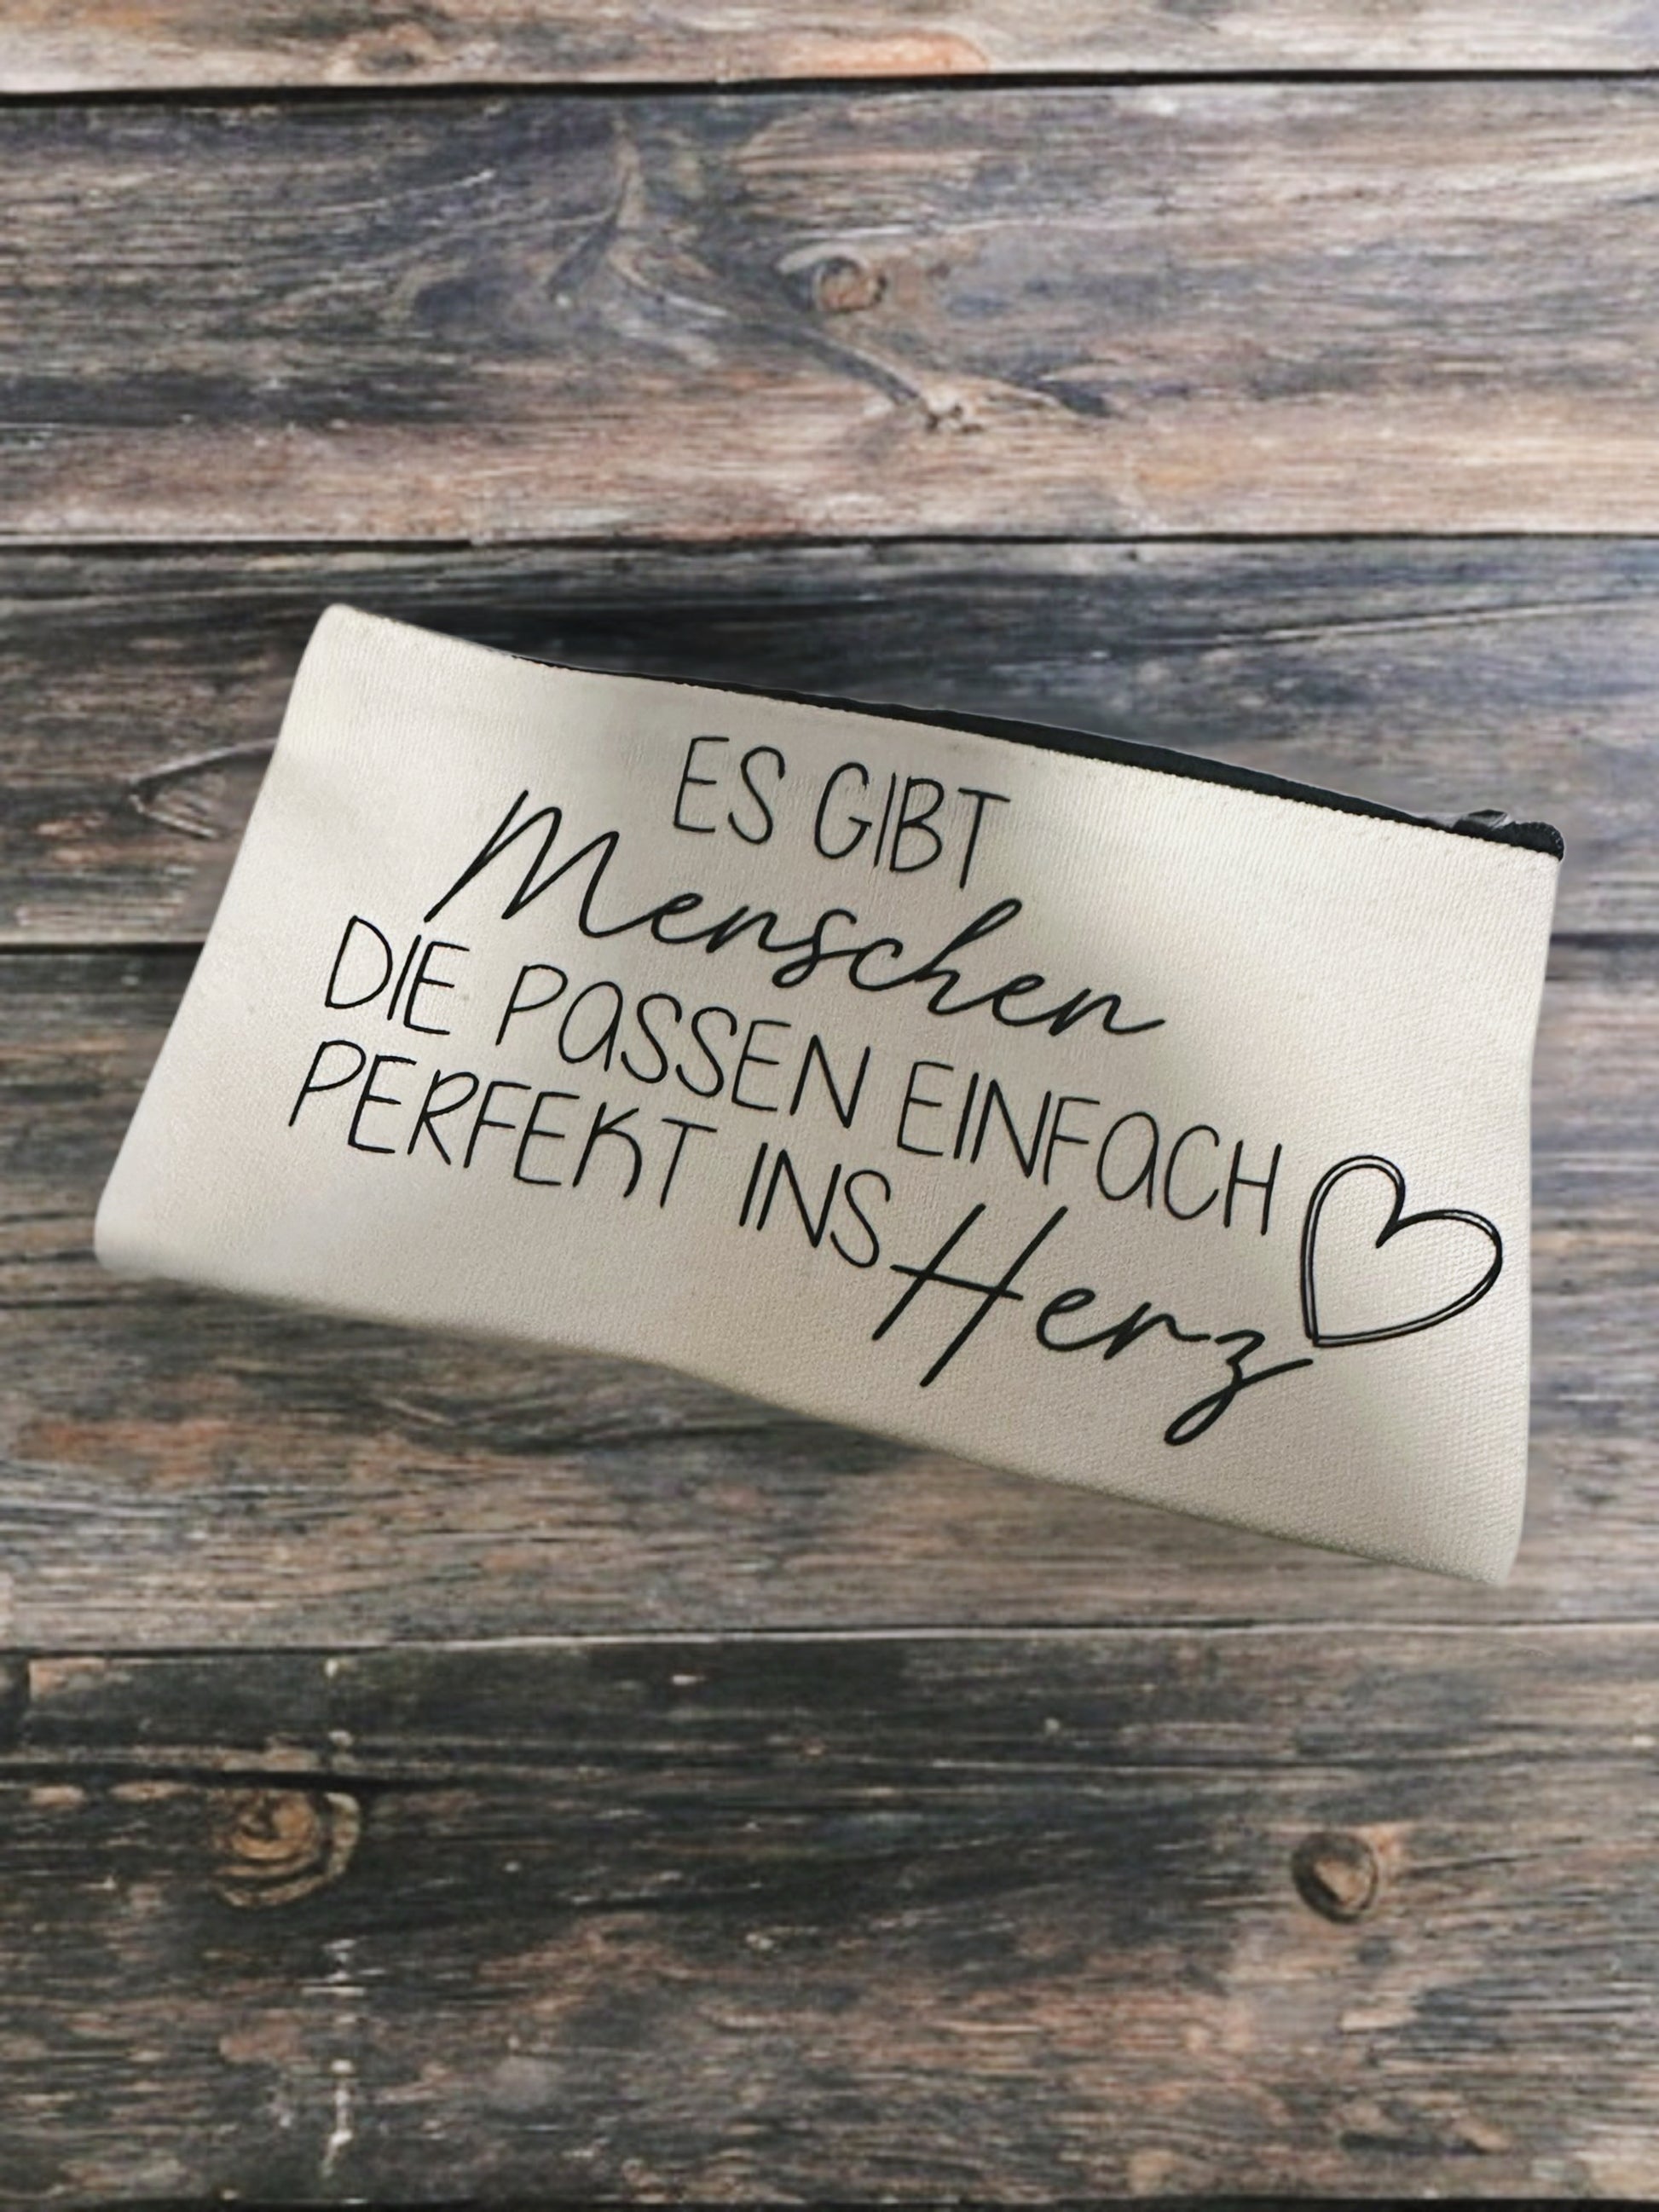 ES GIBT
Menschen
DIE PASSEN EINFACH
PERFEKT INS Herz